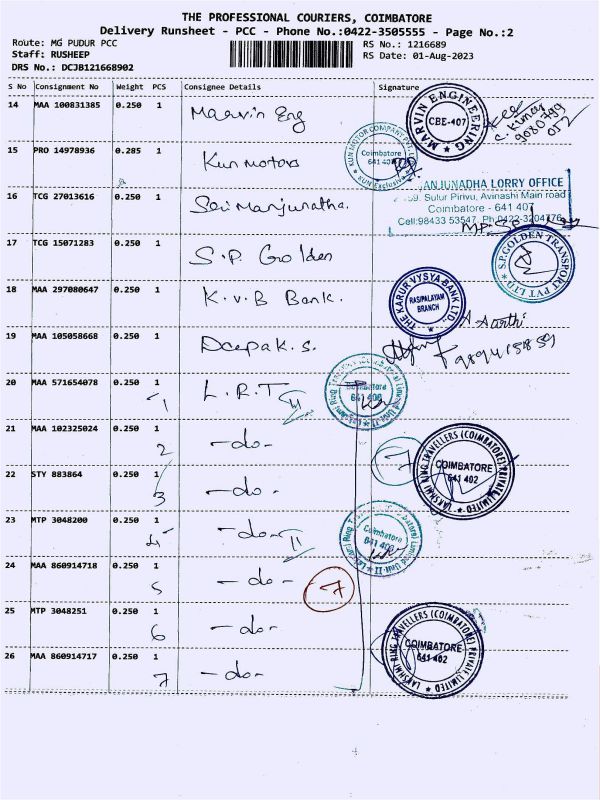 THE PROFESSIONAL COURIERS, COIMBATORE
Delivery Runsheet - PCC - Phone No.:0422-3505555 - Page No.:2
Route: MG PUDUR PCC RS No.: 1216689
Staff: RUSHEEP RS Date: 01-Aug-2023
DRS No.: DCJB121668902
S No Consignment No Weight PCS Consignee Details Signature
14 MAA 100831385 0.250 1 Marvin Eng
MARVIN ENGINEERING CBE-407
C. Kumar
15 PRO 14978936 0.285 1 Kun Motors
KUN MOTOR COMPANY PVT. LTD. Coimbatore KUN Exclusive
16 TCG 27013616 0.250 1 Sri Manjunatha.
ANJUNADHA LORRY OFFICE
59. Sulur Pirivu, Avinashi Main road
Coimbatore - 641 407
Cell:98433 53547 Ph:0422-3204776
17 TCG 15071283 0.250 1 S.P. Golden
S.P.GOLDEN TRANSPORT PVT LTD
18 MAA 297080647 0.250 1 K.V.B Bank.
THE KARUR VYSYA BANK LTD. RASIPALAYAM BRANCH
A Aarthi
19 MAA 105058668 0.250 1 Deepak.S.
989415859
20 MAA 571654078 0.250 1 L.R.T II
1
Coimbatore
21 MAA 102325024 0.250 1 -do-
2
7
LAKSHMI RING TRAVELLERS (COIMBATORE) PRIVATE LIMITED COIMBATORE 641 402
22 STY 883864 0.250 1 -do-
3
23 MTP 3048200 0.250 1 -do- II
4
Coimbatore
24 MAA 860914718 0.250 1 -do-
5
7
25 MTP 3048251 0.250 1 -do-
6
LAKSHMI RING TRAVELLERS (COIMBATORE) PRIVATE LIMITED COIMBATORE 641 402
26 MAA 860914717 0.250 1 -do-
7